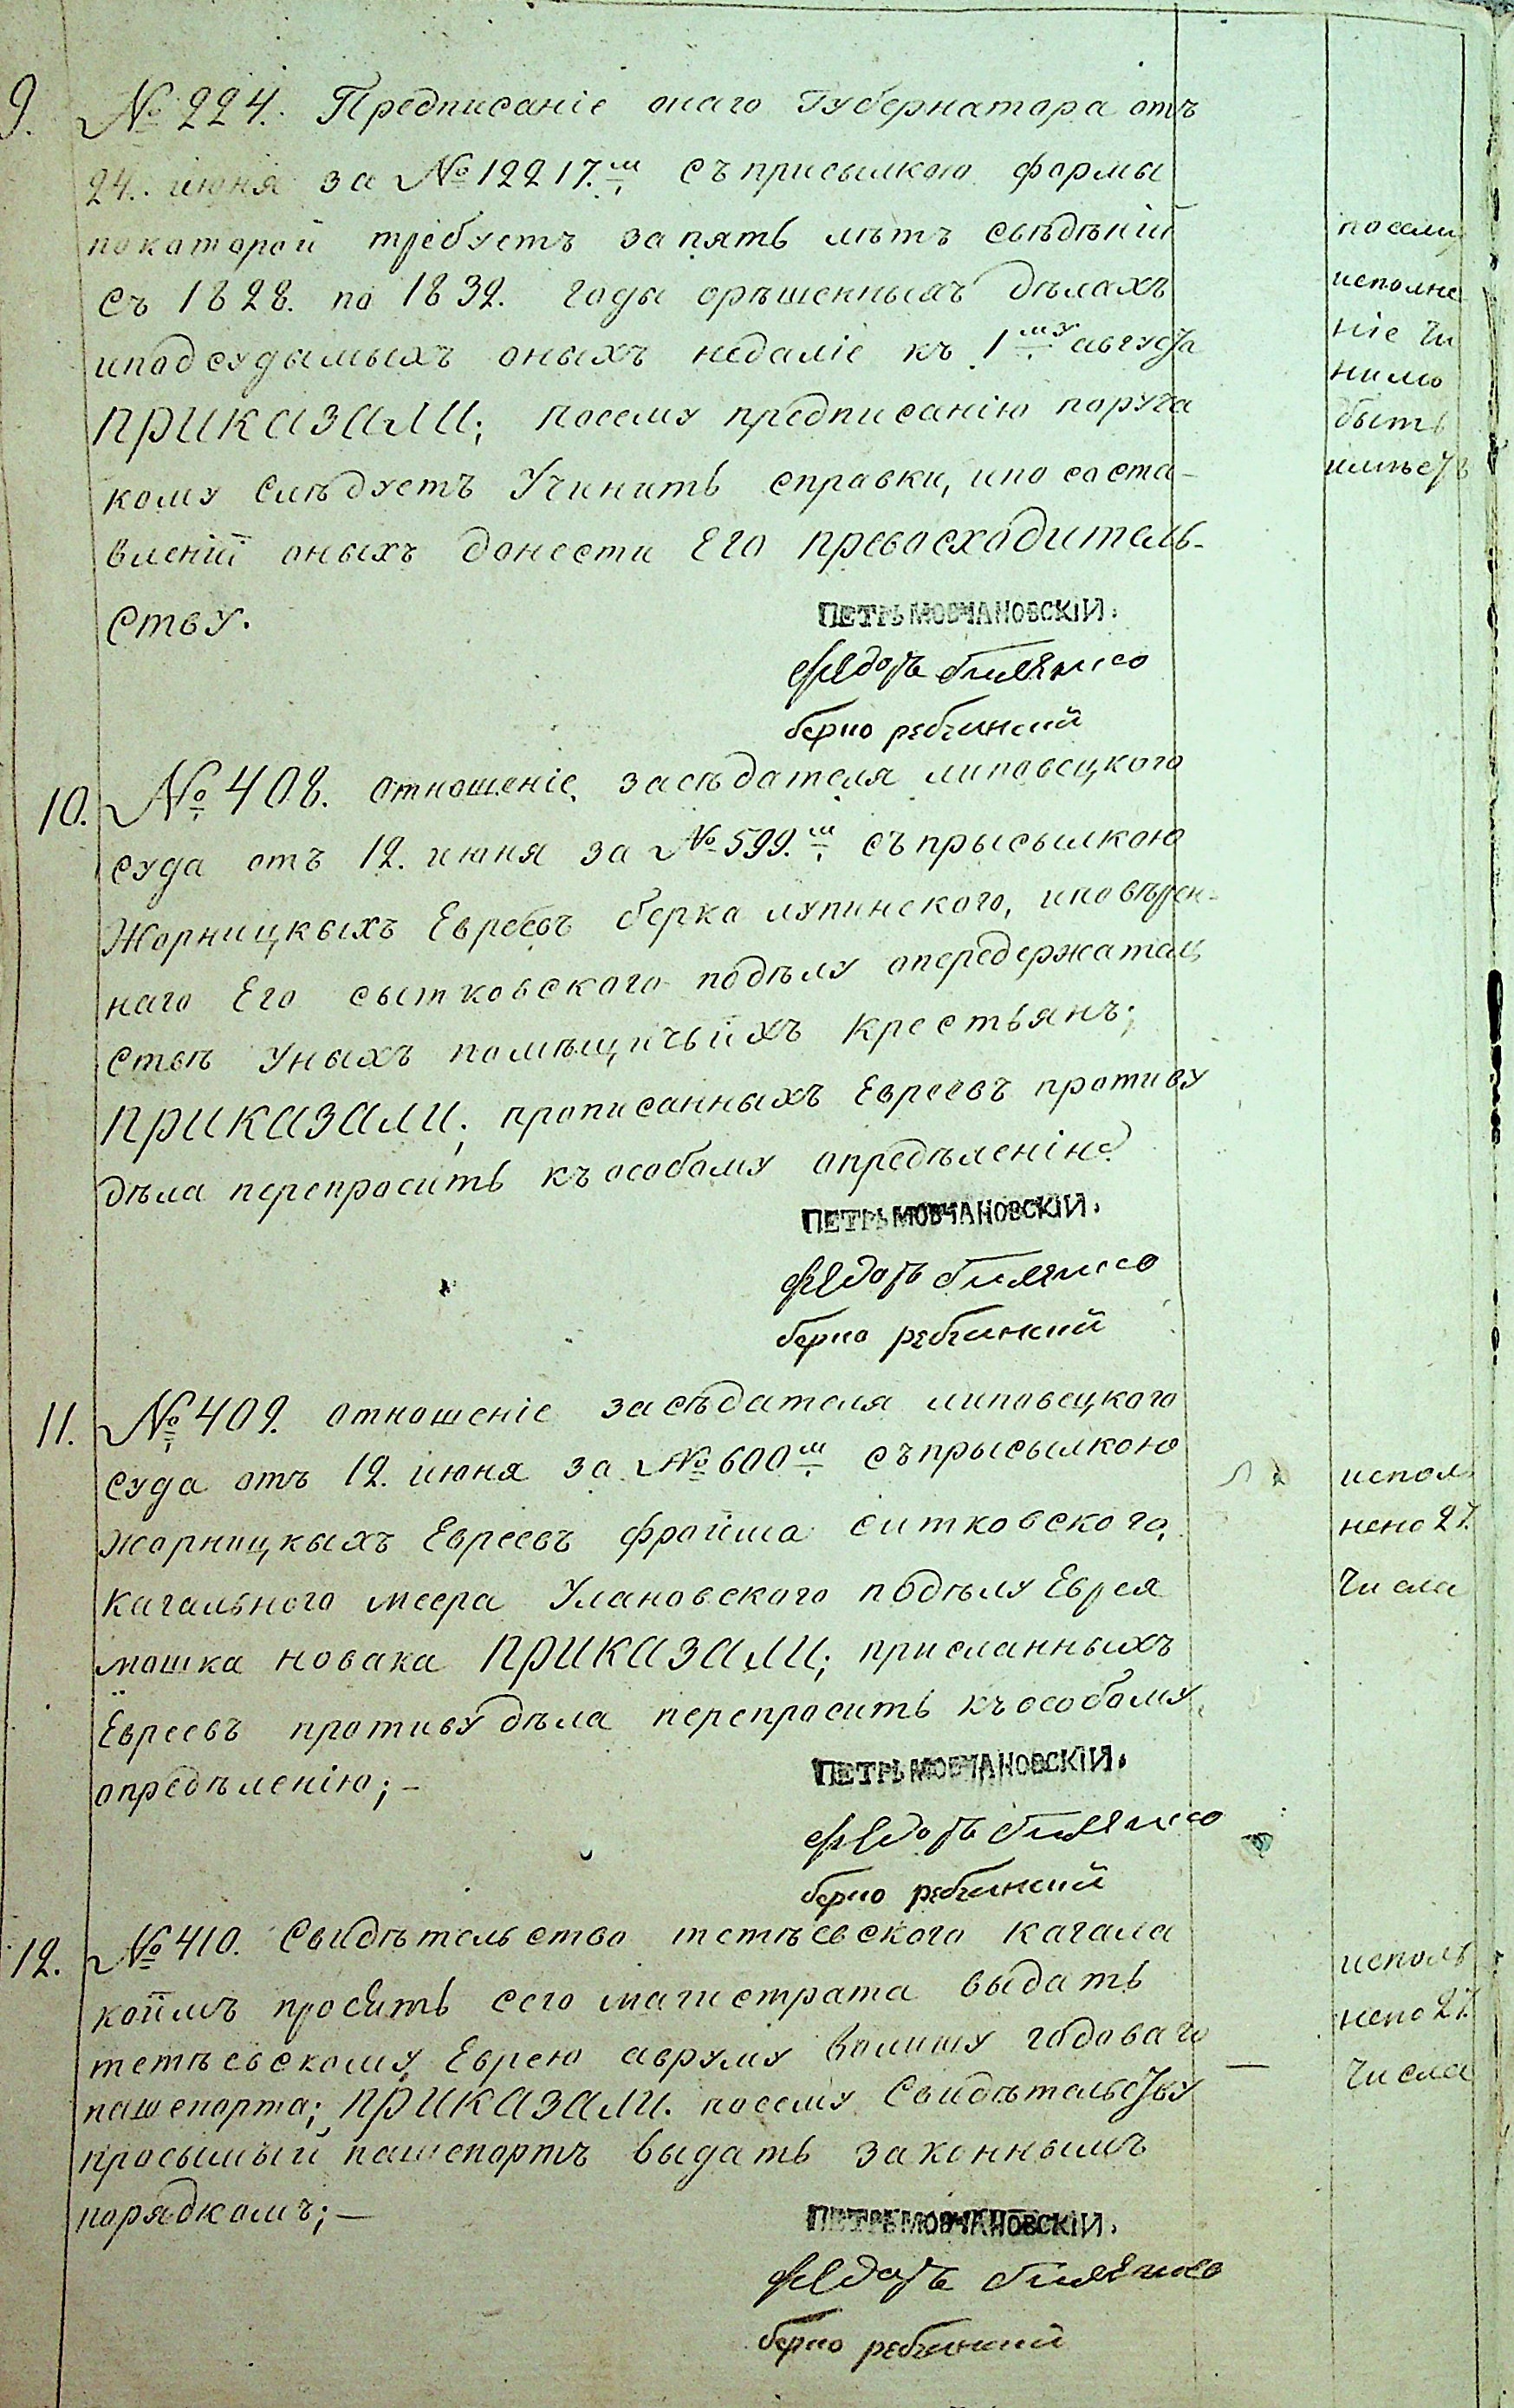 9. № 224. Предписаніе онаго Губернатора отъ
24. июня за № 12217.м съ присылкою формы
покоторой требуетъ запять лѣтъ свѣдѣній
съ 1828. по 1832. годы орѣшенныхъ дѣлахъ
иподсудымыхъ оныхъ недаліе къ 1му августа
ПРИКАЗАЛИ; посему предписанію поруча
кому слѣдуетъ Учинить справки, ипо соста-
вленіи оныхъ донести Его превосходитель-
ству.
посему
исполне
ніе Чи
нимо
быть
имѣетъ
ПЕТРЬ МОВЧАНОВСКІЙ.
Федотъ
берко ребчинский
10. № 408. отношеніе засѣдателя липовецкого
суда отъ 12. июня за № 599.м съ прысылкою
Жорницкыхъ Евреевъ берка лупинского, иповѣрен-
наго Его сытковского подѣлу опередержатель
ствѣ Уныхъ помѣщичьихъ крестьянъ;
ПРИКАЗАЛИ; прописанныхъ Евреевъ противу
дѣла перепросить къ особому опредѣленію
ПЕТРЬ МОВЧАНОВСКІЙ.
Федотъ
берко ребчинский
11. № 409. отношеніе засѣдателя липовецкого
суда отъ 12. июня за № 600м съ прысылкою
жорницкыхъ Евреевъ фройма ситковского,
кагального меера Улановского подѣлу Еврея
мошка новака ПРИКАЗАЛИ; присланныхъ
Евреевъ противу дѣла перепросить къ особому
опредѣленію; –
испол
нено 27.
Числа
ПЕТРЬ МОВЧАНОВСКІЙ.
Федотъ
берко ребчинский
12. № 410. Свидѣтельство тетѣевского кагала
коимъ просить сего магистрата выдать
тетѣевскому Еврею авруму годоваго
пашепорта; ПРИКАЗАЛИ. посему Свидѣтельству
просымый пашепортъ выдать законнымъ
порядкомъ; —
исполь
нено 27.
Числа
ПЕТРЬ МОВЧАНОВСКІЙ.
Федотъ
берко ребчинский